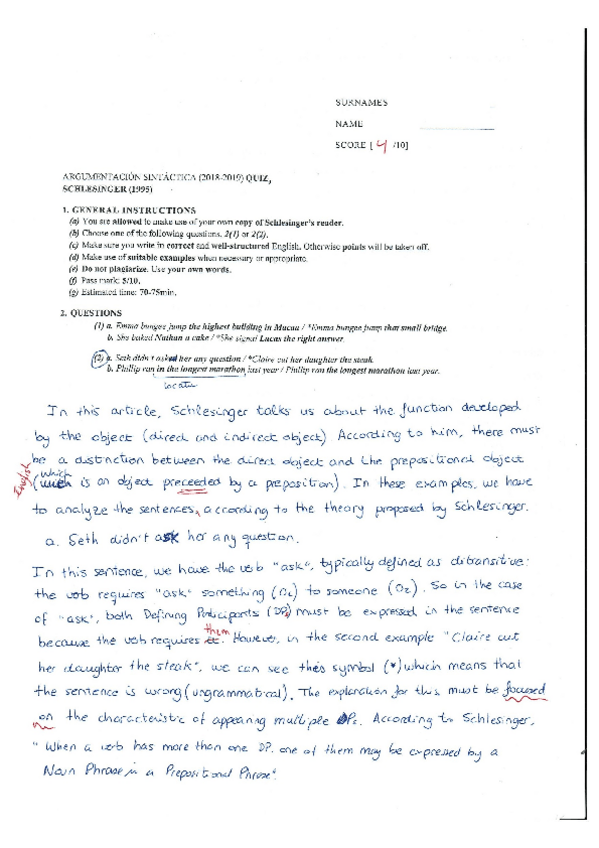 SURNAMES
NAME
SCORE [ 4 /10]
ARGUMENTACIÓN SINTÁCTICA (2018-2019) QUIZ,
SCHLESINGER (1995)
1. GENERAL INSTRUCTIONS
(a) You are allowed to make use of your own copy of Schlesinger's reader.
(b) Choose one of the following questions, 2(1) or 2(2).
(c) Make sure you write in correct and well-structured English. Otherwise points will be taken off.
(d) Make use of suitable examples when necessary or appropriate.
(e) Do not plagiarize. Use your own words.
(f) Pass mark: 5/10.
(g) Estimated time: 70-75min.
2. QUESTIONS
(1) a. Emma bungee jump the highest building in Macau / *Emma bungee jump that small bridge.
b. She baked Nathan a cake / *She signed Lucas the right answer.
(2) a. Seth didn't asked her any question / *Claire cut her daughter the steak.
b. Phillip ran in the longest marathon last year / Phillip ran the longest marathon last year.
In this article, Schlesinger talks us about the function developed
by the object (direct and indirect object). According to him, there must
be a distinction between the direct object and the prepositional object
English
(which is an object preceeded by a preposition). In these examples, we have
to analyze the sentences, according to the theory proposed by Schlesinger.
a. Seth didn't ask her any question.
In this sentence, we have the verb "ask", typically defined as ditransitive:
the verb requires "ask" something (O1) to someone (O2). So in the case
of "ask", both Defining Participants (DPs) must be expressed in the sentence
them
because the verb requires it. However, in the second example "Claire cut
her daughter the steak", we can see this symbol (*) which means that
the sentence is wrong (ungrammatical). The explanation for this must be focused
on the characteristic of appearing multiple DPs. According to Schlesinger,
"When a verb has more than one DP, one of them may be expressed by a
Noun Phrase in a Prepositional Phrase".